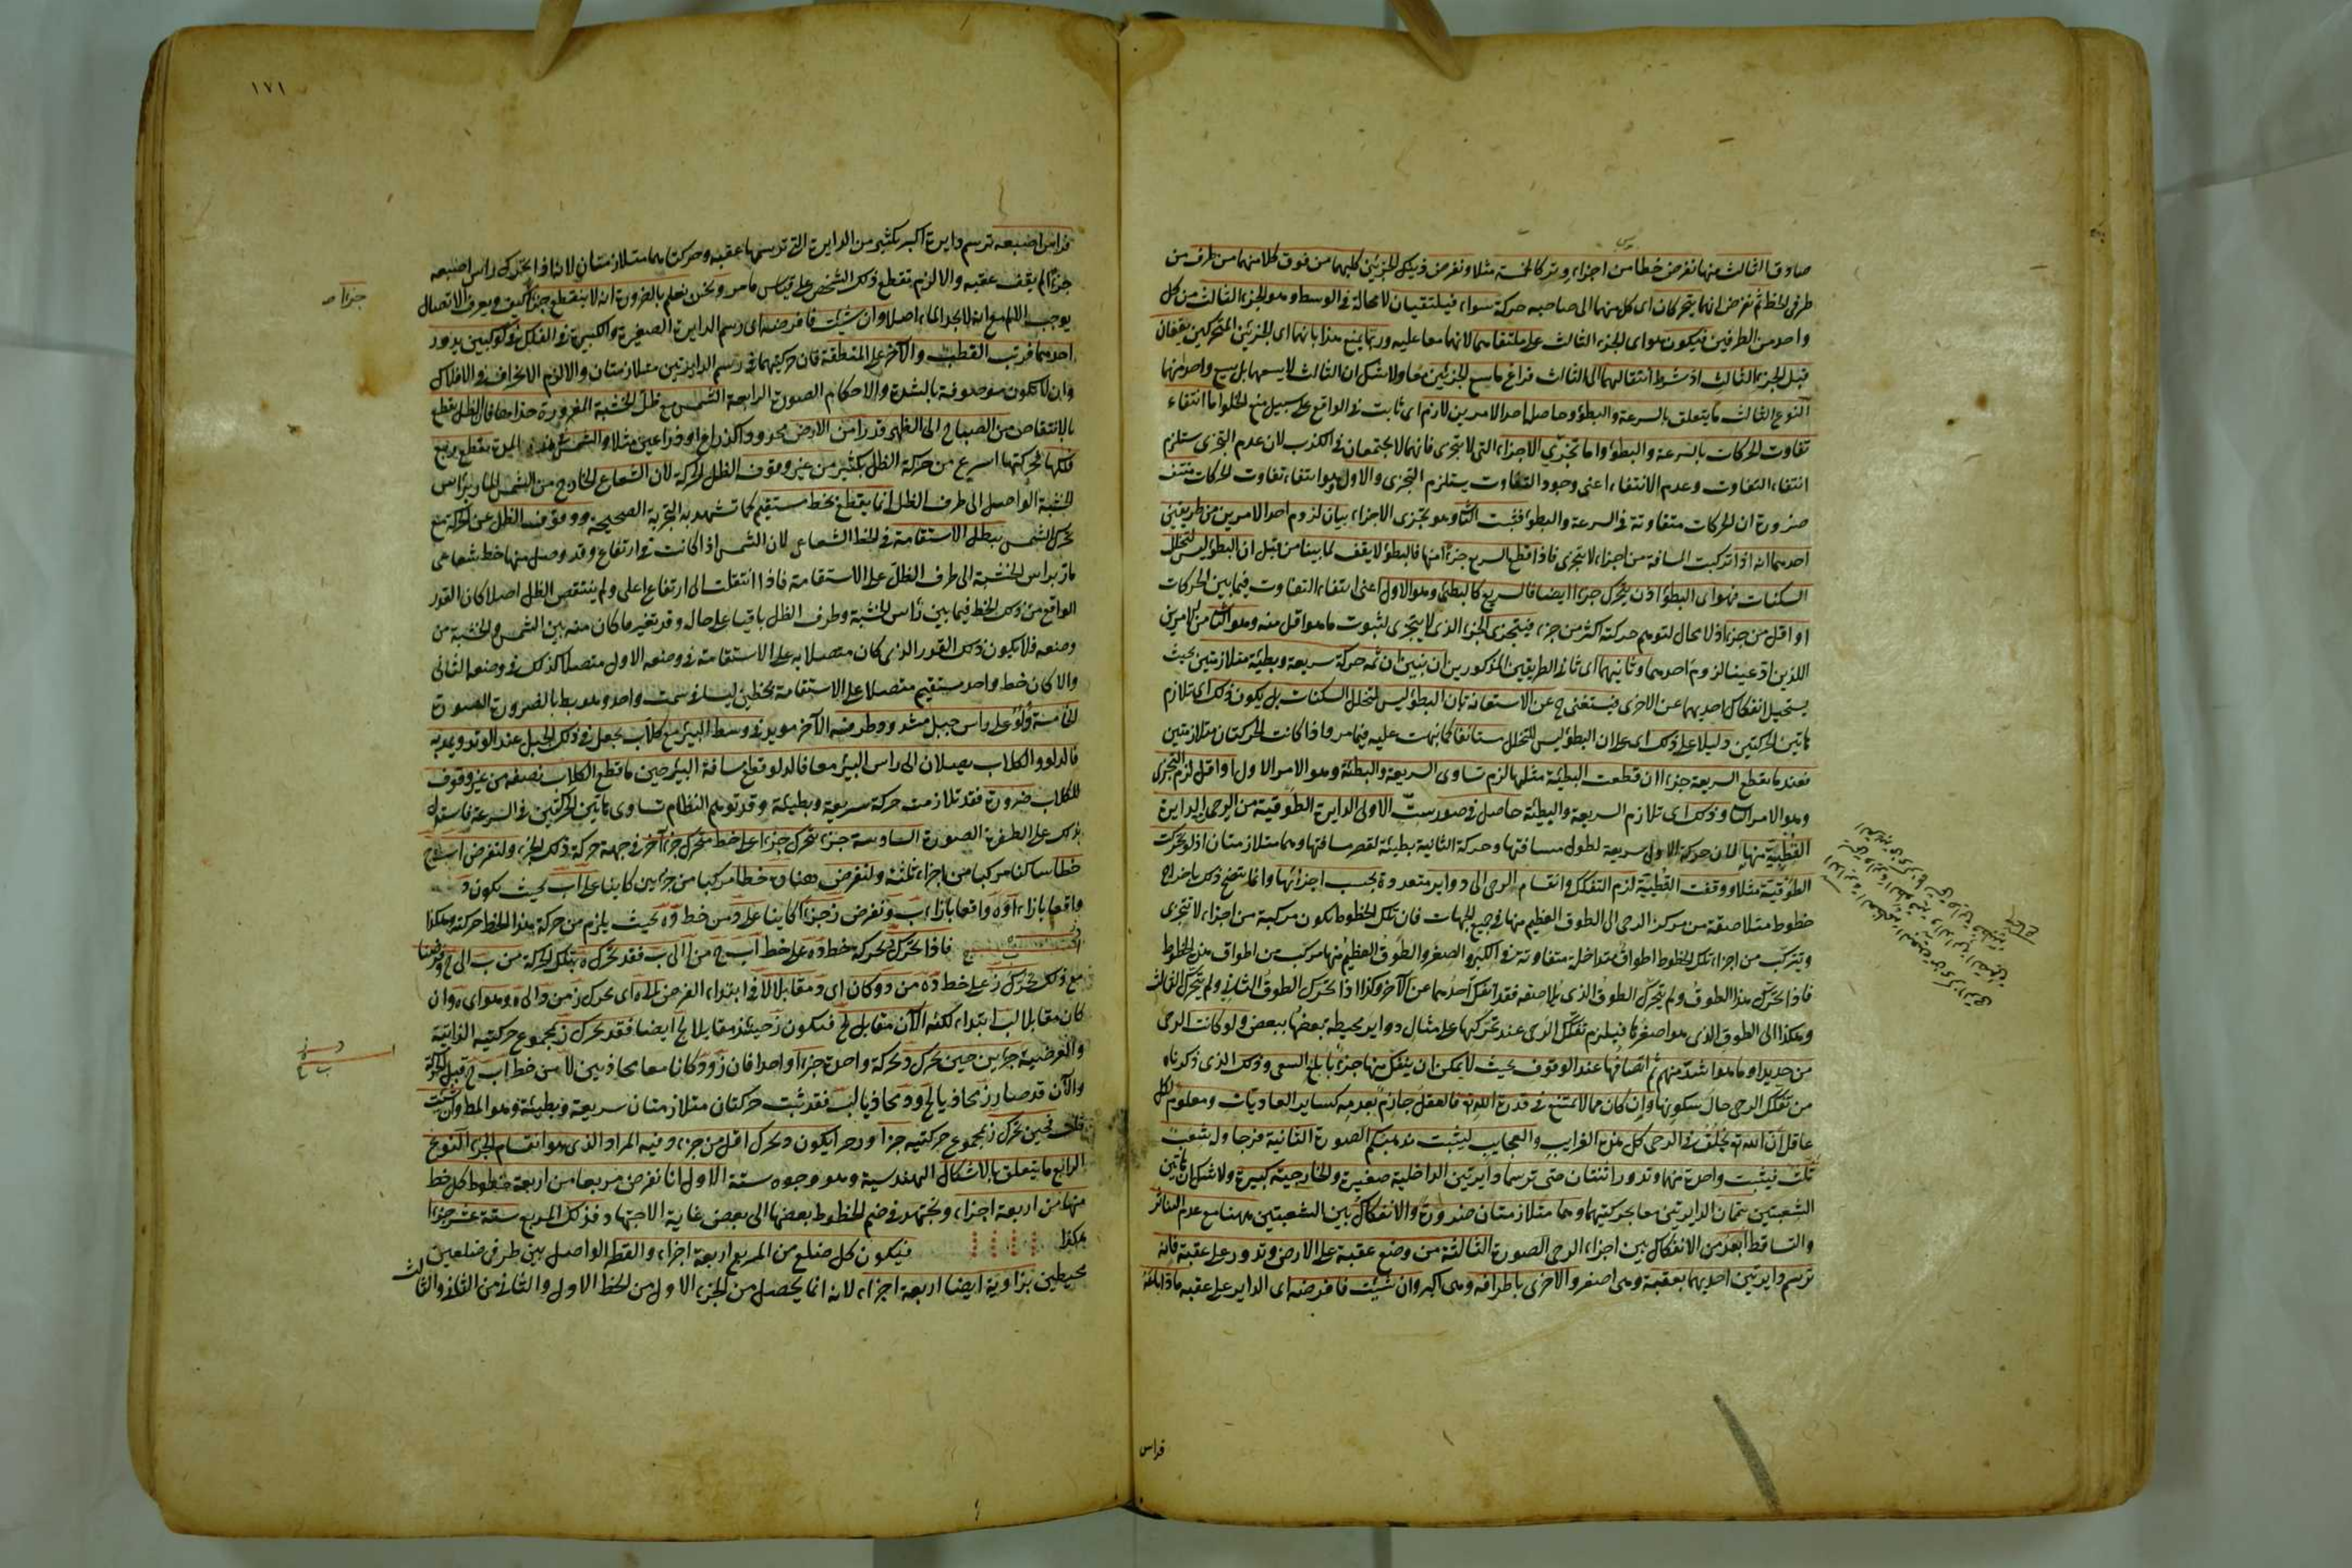 صادق الثالث منها نفرض خطا من اجزاء وتر كالخمسة مثلا ونفرض فيه كل الجزئين كليهما من فوق كلا منهما من طرف من
طرفى الخط ثم نفرض انهما يتحركان اى كل منهما الى صاحبه حركة سواء فيلتقيان لا محالة فى الوسط وهو الجزء الثالث من كل
واحد من الطرفين فيكون هو اى الجزء الثالث على ملتقاهما لانهما معا عليه وربما يمنع هذا بانهما اى الجزئين المتحركين يقفان
قبل الجزء الثالث اذ شرط انتقالهما الى الثالث فراغ ما يسع الجزئين معا ولا شك ان الثالث لا يسعهما بل يسع واحد منهما
النوع الثالث ما يتعلق بالسرعة والبطؤ وحاصل احد الامرين لازم اى ثابت فى الواقع على سبيل منع الخلو اما انتفاء
تفاوت الحركات بالسرعة والبطؤ واما تجزى الاجزاء التى لا تتجزى فانهما لا يجتمعان فى الكذب لان عدم التجزى يستلزم
انتفاء التفاوت وعدم الانتفاء اعنى وجود التفاوت يستلزم التجزى والاول وهو انتفاء تفاوت الحركات منتف
ضرورة ان الحركات متفاوتة فى السرعة والبطؤ فثبت الثا وهو تجزى الاجزاء بيان لزوم احد الامرين من طريقين
احدهما انه اذا تركبت المسافة من اجزاء لا تتجزى فاذا قطع السريع جزءا منها فالبطؤ لا يقف لما بينا من قبل ان البطؤ ليس لتخلل
السكنات فهو اى البطؤ اذن يتحرك جزءا ايضا فالسريع كالبطئ وهو الاول اعنى انتفاء التفاوت فيما بين الحركات
او اقل من جزء اذ لا مجال لتوهم حركته اكثر من جزء فيتجزى الجزء الذى لا يتجزى لثبوت ما هو اقل منه وهو الثا من الامرين
اللذين ادعينا لزوم احدهما وثانيهما اى ثانى الطريقين المذكورين ان نبين ان ثمه حركة سريعة وبطيئة متلازمتين بحيث
يستحيل انفكاك احديهما عن الاخرى فيستغنى ح عن الاستعانة بان البطؤ ليس لتخلل السكنات بل يكون ذلك اى تلازم
هاتين الحركتين دليلا على ذلك اى على ان البطؤ ليس للتخلل مستانفا كما نبهت عليه فيما مر واذا كانت الحركتان متلازمتين
فعند ما يقطع السريعة جزءا ان قطعت البطيئة مثلها لزم تساوى السريعة والبطيئة وهو الامر الاول او اقل لزم التجزى
وهو الامر الثا وذلك اى تلازم السريعة والبطيئة حاصل فى صور ست الاولى الدايرة الطوقية من الرحى والدايرة
القطبية منها لان حركة الاولى سريعة لطول مسافتها وحركة الثانية بطيئة لقصر مسافتها وهما متلازمتان اذ لو تحركت
الطوقية مثلا ووقفت القطبية لزم التفكك وانقسام الرحى الى دواير متعددة بحسب اجزائها وانما يتضح ذلك باخراج
خطوط متلاصقة من مركز الرحى الى الطوق العظيم منها فى جميع الجهات فان تلك الخطوط يكون مركبة من اجزاء لا تتجزى
ويتركب من اجزاء تلك الخطوط اطواق متداخلة متفاوتة فى الكبر والصغر والطوق العظيم منها مركب من اطواق هذه الخطوط
فاذا تحرك هذا الطوق ولم يتحرك الطوق الذى يلاصقه فقد انفك احدهما عن الآخر وكذا اذا تحرك الطوق الثانى ولم يتحرك الثالث
وهكذا الى الطوق الذى هو اصغرها فيلزم تفكك الرحى عند تحركها على مثال دواير محيطة بعضها ببعض ولو كانت الرحى
من حديد او ما هو اشد منهم ثم اتصافها عند الوقوف بحيث لا يمكن ان ينفك منها جزء بابلغ السعى وذلك الذى ذكرناه
من تفكك الرحى حال سكونها وان كان مما لا يمتنع فى قدرة الله تعه فالعقل جازم بعدمه كساير العاديات ومعلوم لكل
عاقل ان الله تعه لم يخلق فى الرحى كل هذه الغرايب والعجايب ليثبت مذهبكم الصورة الثانية فرجار له شعب
ثلث فيثبت واحدة منها وتدور اثنتان حتى ترسما دايرتين الداخلية صغيرة والخارجية كبيرة ولا شك ان هاتين
الشعبتين يتمان الدايرتين معا بحركتيهما وهما متلازمتان ضرورة والانفكاك بين الشعبتين ههنا مع عدم التناثر
والتساقط ابعد من الانفكاك بين اجزاء الرحى الصورة الثالثة من وضع عقبه على الارض وتدور على عقبه فانه
ترسم دايرتين احديهما بعقبه وهى اصغر والاخرى باطرافه وهى اكبر وان شئت فافرضه اى الداير على عقبه ماذا باعه
فراس
١٧١
فراس اصبعه ترسم دايرة اكبر بكثير من الدايرة التى ترسمها عقبه وحركتاهما متلازمتان لانه اذا تحرك راس اصبعه
جزءا لم يقف عقبه والا لزم تقطع ذلك الشخص على قياس ما مر ونحن نعلم بالضرورة انه لا ينقطع جزءا كيف وتفرق الاتصال
جزءا صح
يوجب الالم مع انه لا يجد الما اصلا وان شئت فافرضه اى رسم الدايرة الصغيرة والكبيرة فى الفلك فى كوكبين يدور
احدهما قرب القطب والآخر على المنطقة فان حركتيهما فى رسم الدايرتين متلازمتان والا لزم الانخراق فى الافلاك
وان لا تكون موصوفة بالشدة والاحكام الصورة الرابعة الشمس مع ظل الخشبة المغروزة حذاءها فالظل يقطع
بالانتقاص من الصباح الى الظهر قدرا من الارض محدودا كذراع او ذراعين مثلا والشمس فى هذه المدة تقطع ربع
فلكها فحركتها اسرع من حركة الظل بكثير من غير وقوف الظل لحركة لان الشعاع الخارج من الشمس المار براس
الخشبة الواصل الى طرف الظل انما ينقطع بخط مستقيم كما تشهد به التجربة الصحيحة ووقوف الظل عن الحركة مع
تحرك الشمس يبطل الاستقامة فى الخط الشعاعى لان الشمس اذا كانت فى ارتفاع وقد وصل منها خط شعاعى
مار براس الخشبة الى طرف الظل على الاستقامة فاذا انتقلت الى ارتفاع اعلى ولم ينتقص الظل اصلا كان القدر
الواقع من ذلك الخط فيما بين راس الخشبة وطرف الظل باقيا على حاله وقد تغير ما كان منه بين الشمس والخشبة من
وضعه فلا يكون ذلك القدر الذى كان متصلا به على الاستقامة فى وضعه الاول متصلا كذلك فى وضعه الثانى
والا كان خط واحد مستقيم متصلا على الاستقامة بخطين ليسا فى سمت واحد وهو بط بالضرورة الصورة
الخامسة دلو على راس حبل مشدود وطرفه الآخر مويد فى وسط البير مع كلاب يجعل فى ذلك الحبل عند الوتد ويمد به
فالدلو والكلاب يصلان الى راس البير معا فالدلو قطع مسافة البير حين ما قطع الكلاب نصفه من غير وقوف
للكلاب ضرورة فقد تلازمت حركة سريعة وبطيئة وقد توهم النظام تساوى هاتين الحركتين فى السرعة فاستدل
بذلك على الطفرة الصورة السادسة جزء يتحرك جزءا على خط متحرك جزءا آخر فى جهة حركة ذلك الجزء ولنفرض اب ج
خطا ساكنا مركبا من اجزاء ثلثة ولنفرض هناك خطا مركبا من جزءين كاينا على اب بحيث يكون د
واقعا بازاء ا و ه واقعا بازاء ب ونفرض ز جزءا كاينا على د من خط ده بحيث يلزم من حركة هذا الخط حركته هكذا
فاذا تحرك بحركة خط ده على خط اب ج من ا الى ب فقد تحرك ه بتلك الحركة من ب الى ج وفرضنا
مع ذلك تحرك ز على خط ده من د وكان اى د مقابلا لا فى ابتداء الفرض الى ه اى تحرك ز من د الى ه وهو اى ه وان
كان مقابلا لب ابتداء لكنه الآن مقابل لج فيكون ز حينئذ مقابلا لج ايضا فقد تحرك ز بمجموع حركتيه الذاتية
والعرضية جزءين حين تحرك د بحركة واحدة جزءا واحدا فان ز و د كانا معا محاذيين لا من خط اب ج قبل الحركة
والآن قد صار ز محاذيا لج و د محاذيا لب فقد ثبت حركتان متلازمتان سريعة وبطيئة وهو المط وان شئت
قلت فحين تحرك ز بمجموع حركتيه جزءا ودحرا يكون د تحرك اقل من جزء وفيه المراد الذى هو انقسام الجزء النوع
الرابع ما يتعلق بالاشكال الهندسية وهو وجوه ستة الاول انا نفرض مربعا من اربعة خطوط كل خط
منها من اربعة اجزاء ونجتهد فى ضم الخطوط بعضها الى بعض غاية الاجتهاد فذلك المربع ستة عشر جزءا
هكذا فيكون كل ضلع من المربع اربعة اجزاء والقطر الواصل بين طرفى ضلعين
محيطين بزاوية ايضا اربعة اجزاء لانه انما يحصل من الجزء الاول من الخط الاول والثانى من الثانى والثالث